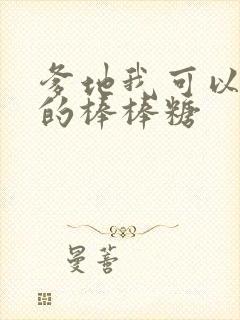 爹地我可以
的棒棒糖
曼蒼